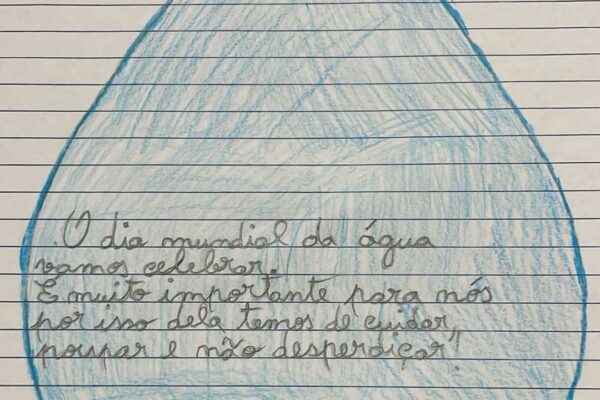 O dia mundial da água
vamos celebrar.
É muito importante para nós
por isso dela temos de cuidar,
poupar e não desperdiçar!